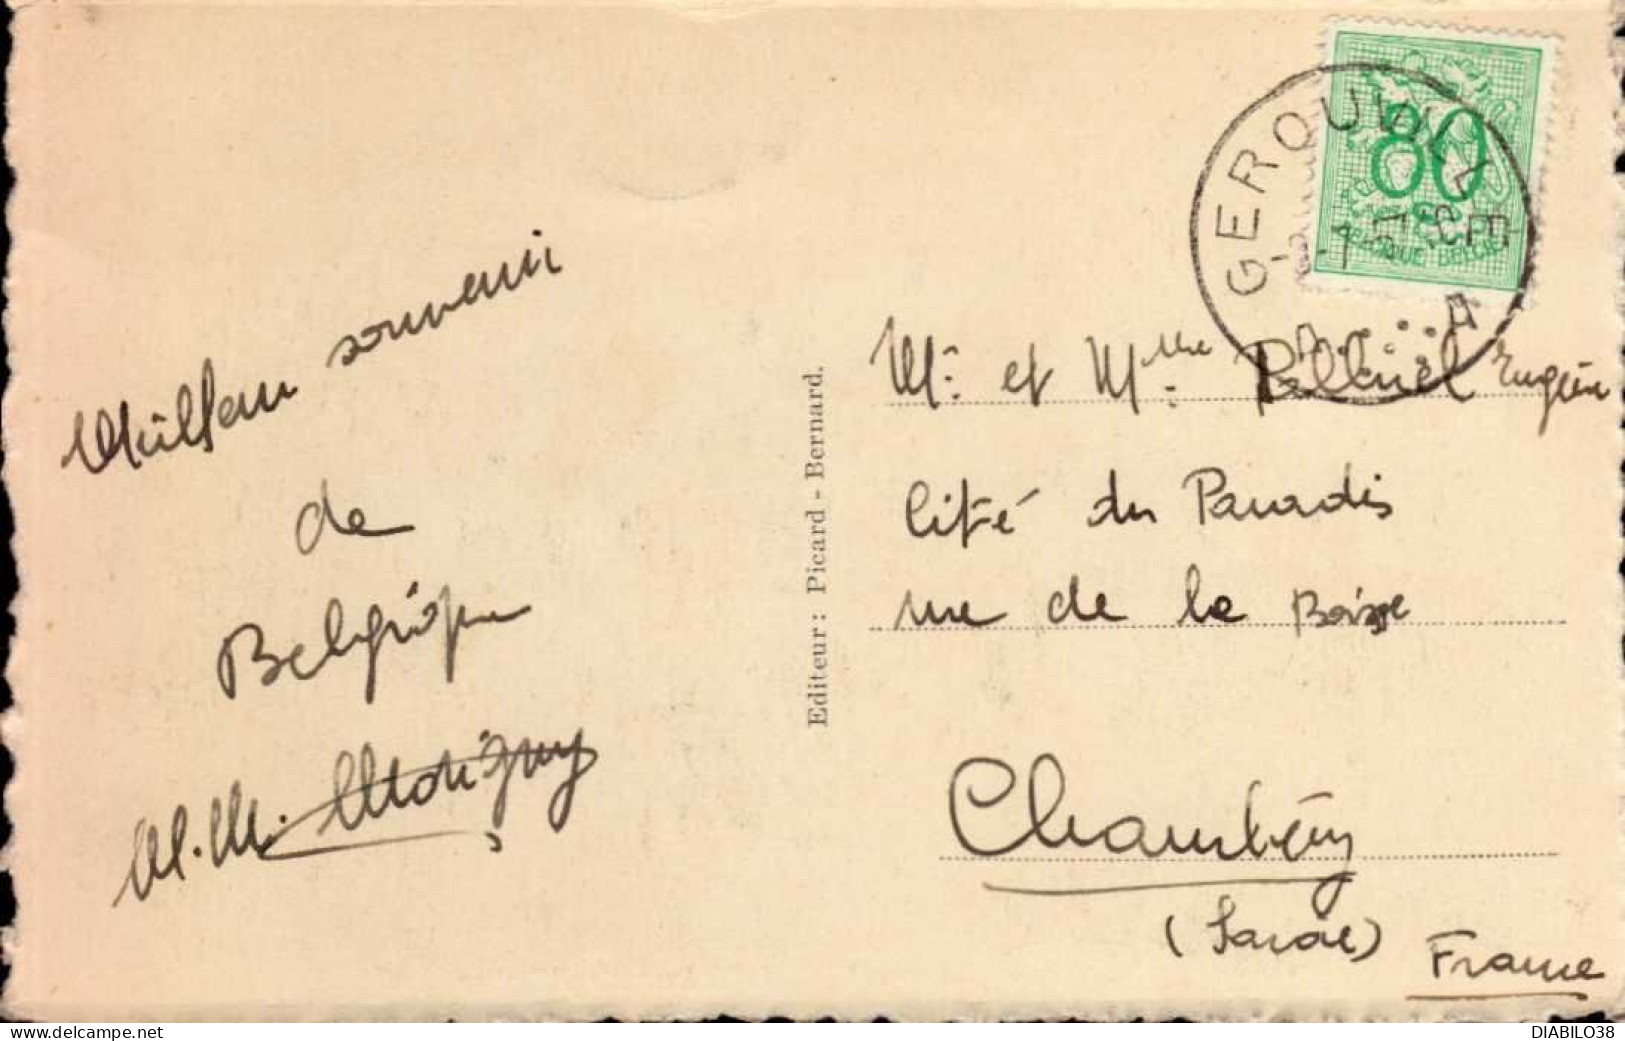 Meilleur souvenir
de
Belgique
M. M. Morigny
Editeur: Picard - Bernard.
GEROUVILLE
80
BELGIQUE BELGIE
Mr et Mme Eugène
Cité du Paradis
rue de la Boisse
Chambéry
(Savoie)
France
DIABILO38